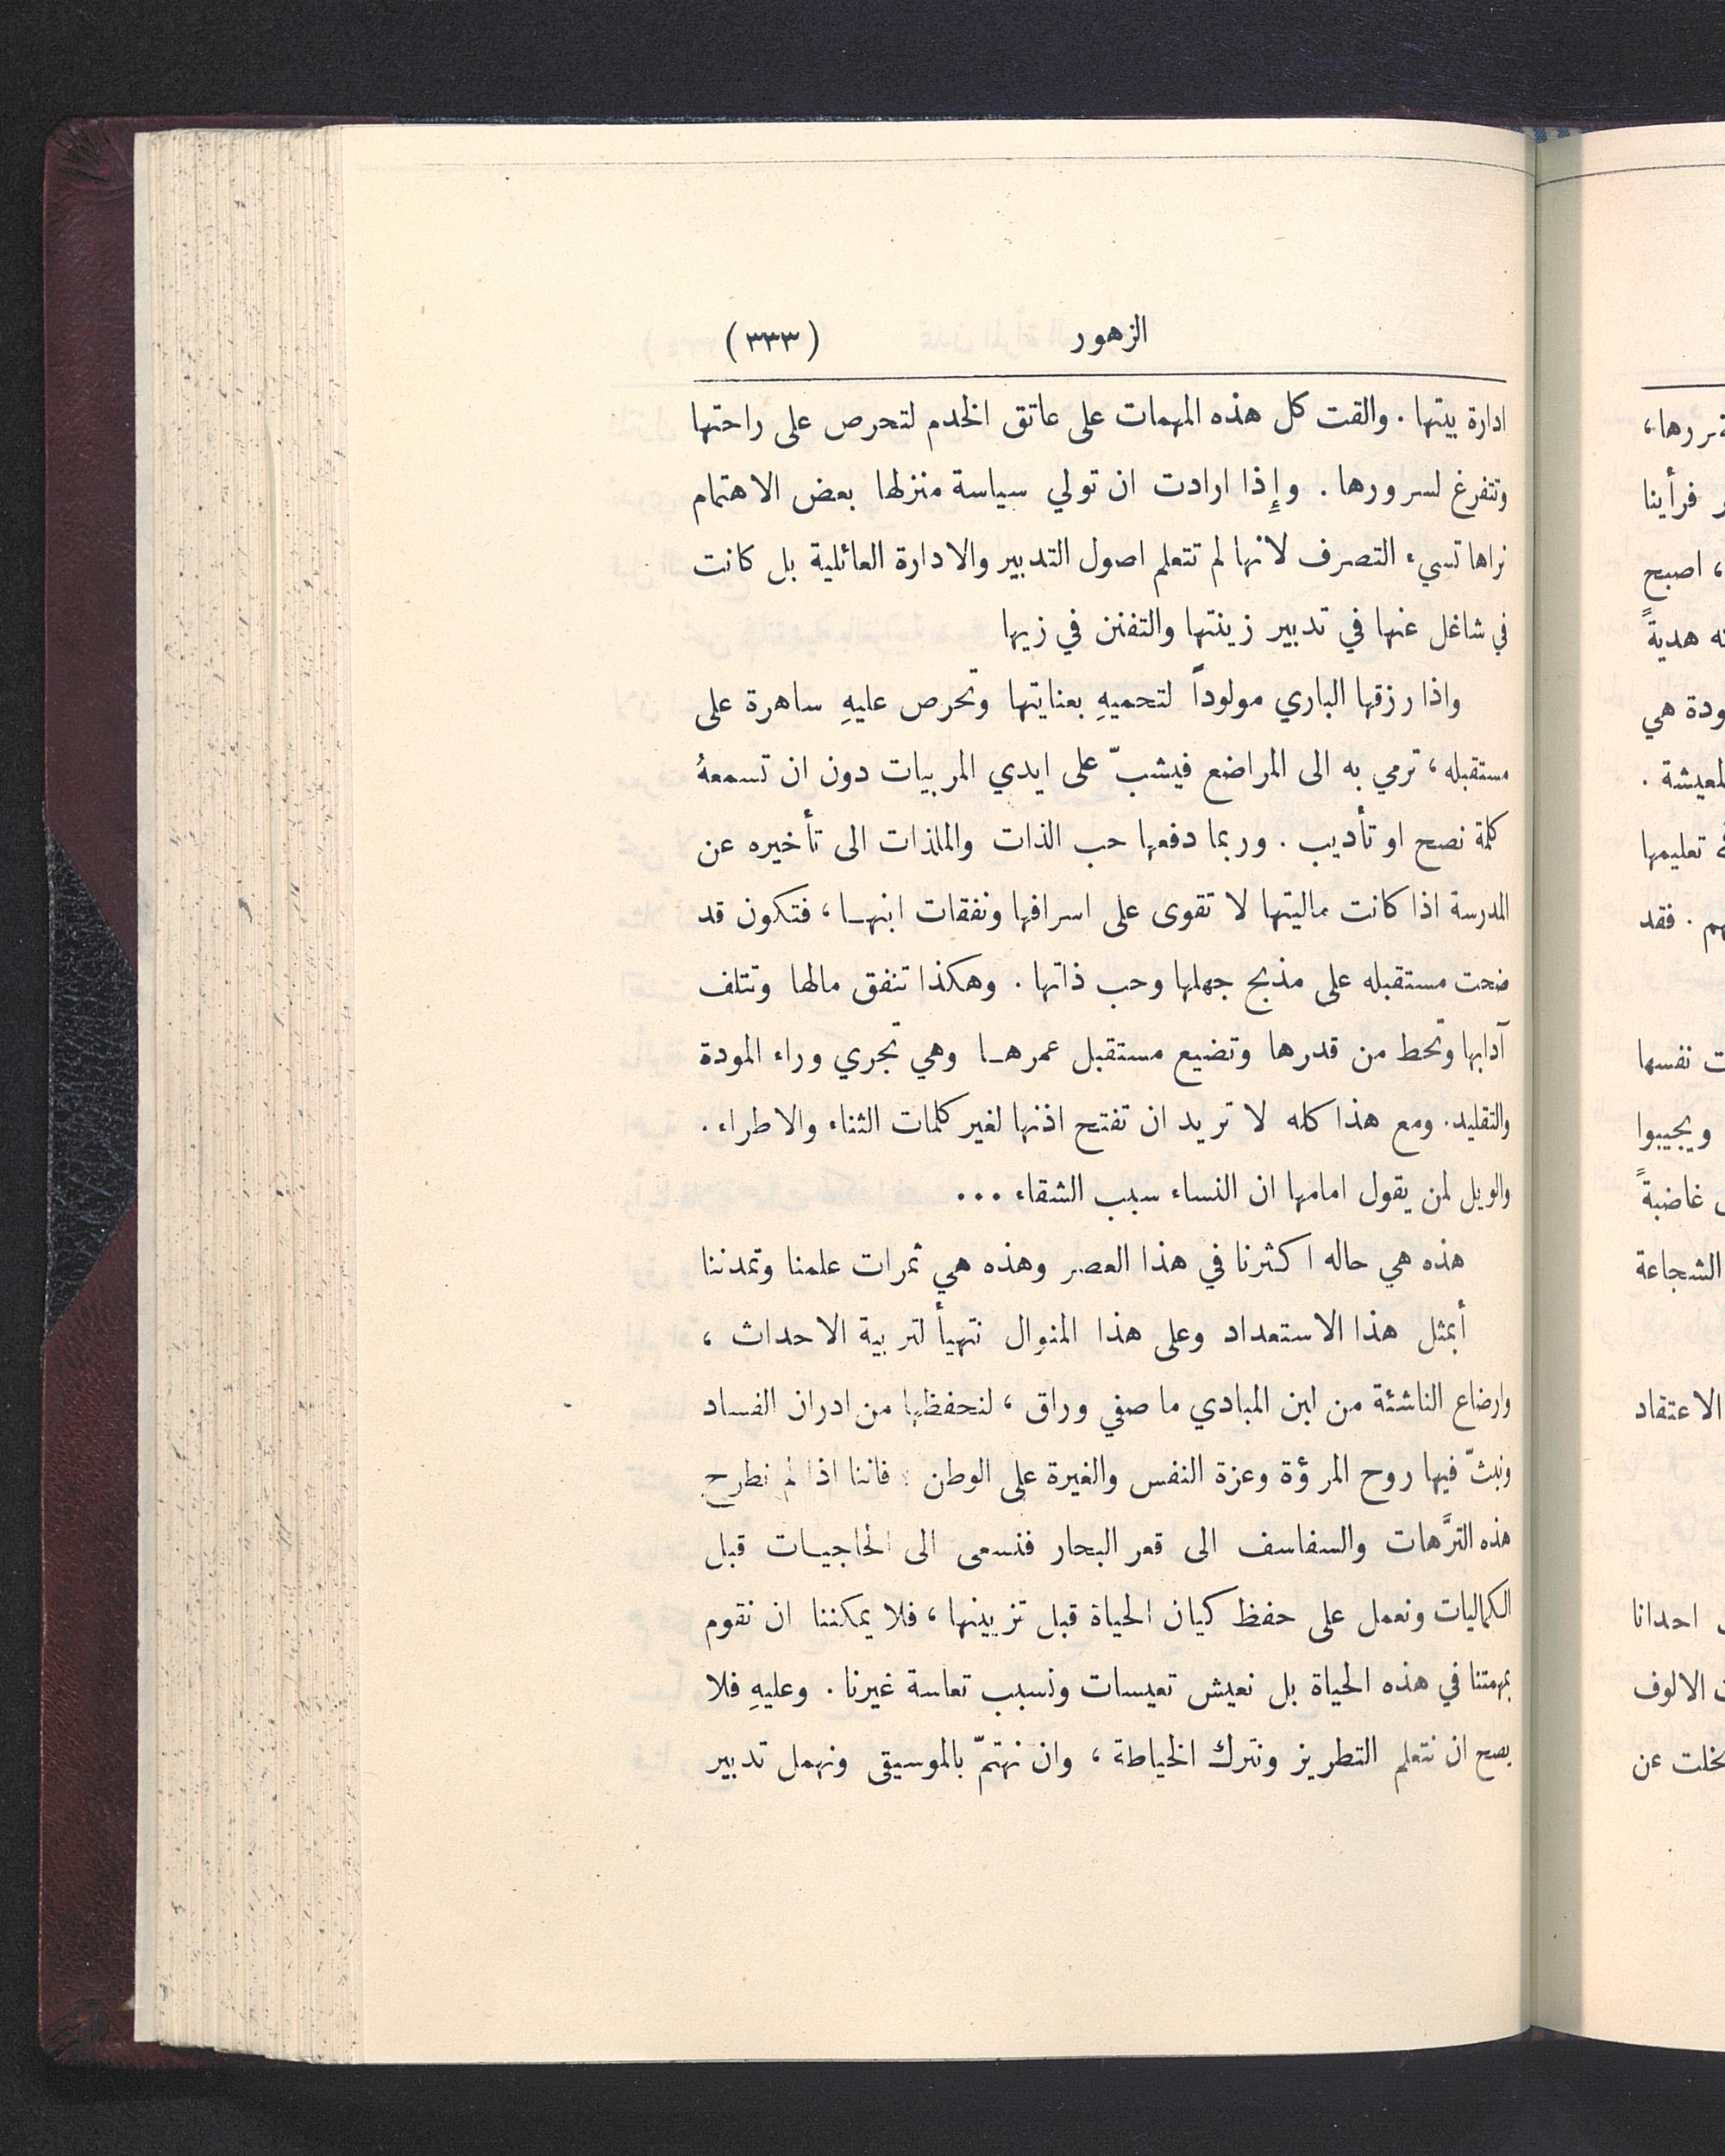 الزهور (٣٣٣)
ادارة بيتها . والقت كل هذه المهمات على عاتق الخدم لتحرص على راحتها
وتتفرغ لسرورها . وإِذا ارادت ان تولي سياسة منزلها بعض الاهتمام
نراها تسيء التصرف لانها لم تتعلم اصول التدبير والادارة العائلية بل كانت
في شاغل عنها في تدبير زينتها والتفنن في زيها
واذا رزقها الباري مولوداً لتحميهِ بعنايتها وتحرص عليهِ ساهرة على
مستقبله ، ترمي به الى المراضع فيشبّ على ايدي المربيات دون ان تسمعهُ
كلمة نصح او تأديب . وربما دفعها حب الذات والملذات الى تأخيره عن
المدرسة اذا كانت ماليتها لا تقوى على اسرافها ونفقات ابنهـا ، فتكون قد
ضحت مستقبله على مذبح جهلها وحب ذاتها . وهكذا تنفق مالها وتتلف
آدابها وتحط من قدرها وتضيع مستقبل عمرهـا وهي تجري وراء المودة
والتقليد . ومع هذا كله لا تريد ان تفتح اذنها لغير كلمات الثناء والاطراء .
والويل لمن يقول امامها ان النساء سبب الشقاء ...
هذه هي حاله اكثرنا في هذا العصر وهذه هي ثمرات علمنا وتمدننا
أبمثل هذا الاستعداد وعلى هذا المنوال نتهيأ لتربية الاحداث ،
وارضاع الناشئة من لبن المبادي ما صفي وراق ، لنحفظها من ادران الفساد
ونبثّ فيها روح المرؤة وعزة النفس والغيرة على الوطن : فاننا اذا لم نطرح
هذه الترَّهات والسفاسف الى قعر البحار فنسعى الى الحاجيـات قبل
الكماليات ونعمل على حفظ كيان الحياة قبل تزيينها ، فلا يمكننا ان نقوم
بمهمتنا في هذه الحياة بل نعيش تعيسات ونسبب تعاسة غيرنا . وعليهِ فلا
يصح ان نتعلم التطريز ونترك الخياطة ، وان نهتمّ بالموسيقى ونهمل تدبير
فرأينا
، اصبح
هديةً
هي
تعليمها
. فقد
نفسها
ويجيبوا
غاضبةً
الشجاعة
الاعتقاد
احدانا
الالوف
عن